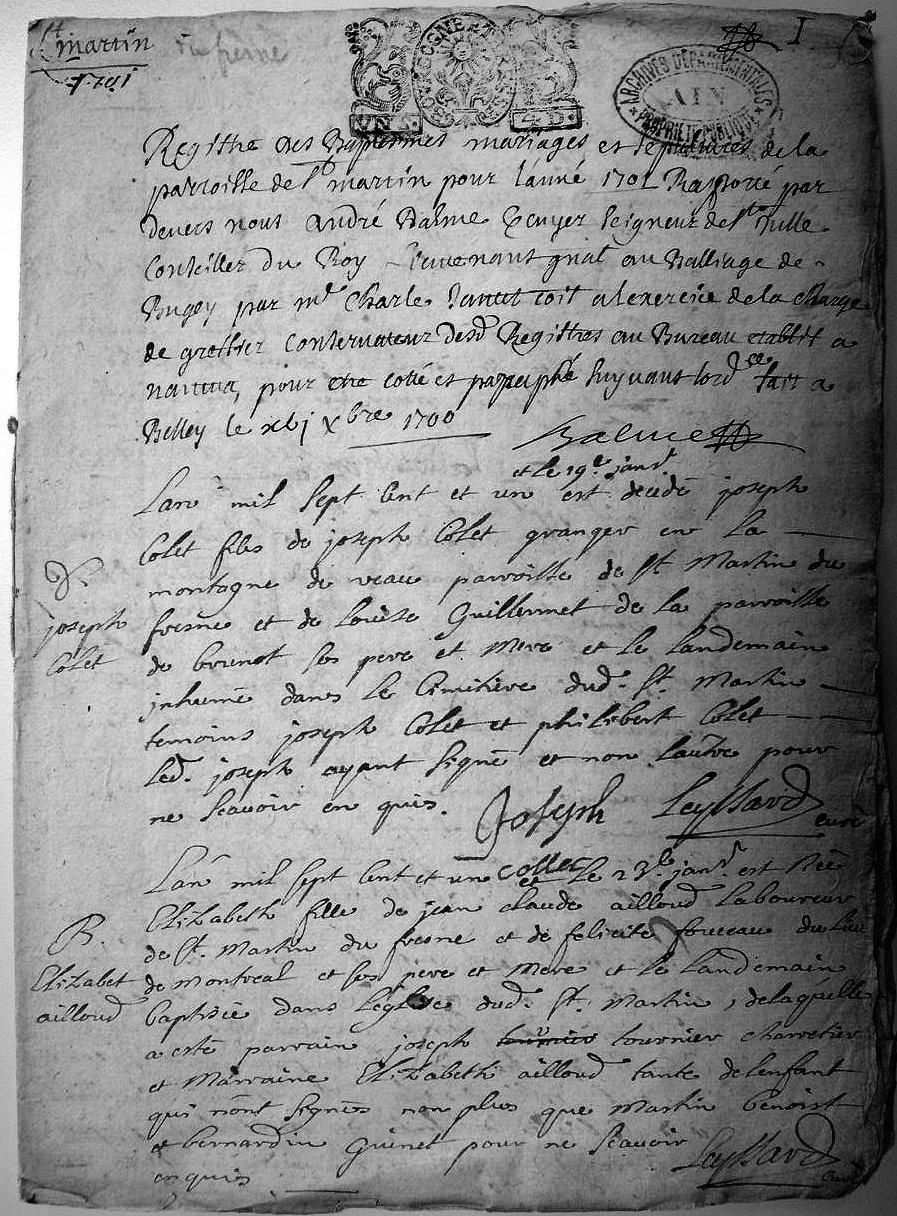 St martin du fresne
1701
I
BOURGOGNE ET BRESSE
VN S.
4 D.
ARCHIVES DÉPARTEMENTALES
AIN
PROPRIÉTÉ PUBLIQUE
Registre des Baptesmes mariages et sepultures de la
parroisse de st martin pour l'anné 1701 Rapporté par
devers nous andré Balme Escuyer seigneur de ste Julle
Conseiller du Roy Lieutenant gnal au Balliage de
Bugey par mr Charle commis a lexercice de la charge
de greffier Conservateur desd Registres au Bureau establit a
nantua, pour etre cotté et parapuphé suyvant lordce fait a
Belley le xbre 1700
Balme
et le 19e janvr
Lan mil sept cent et un est decedé joseph
Colet fils de joseph Colet granger en La
montagne de veau parroisse de St Martin du
fresne et de Louise Guillermet de La parroisse
de brenot ses pere et Mere et le landemain
inhumé dans Le Cimitiere dud. St. Martin
temoins joseph Colet et philibert Colet
Led. joseph ayant signé et non lautre pour
ne scavoir en quis.
Joseph
collet
Leyssard
curé
D.
joseph
Colet
Lan mil sept cent et un et Le janvr. est Née
Elizabeth fille de jean claude ailloud Laboureur
de St. Martin du fresne et de felicite du Lieu
de Montreal et ses pere et Mere et le landemain
baptisée dans Léglise dud. St. Martin, delaquelle
a esté parrain joseph tournier tournier charretier
et Marraine Elizabeth ailloud tante de lenfant
qui nont signés non plus que Martin benoist
et bernardin Guinet pour ne scavoir
enquis
Leyssard
curé
B.
Elizabet
ailloud